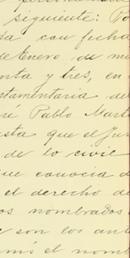 siguiente: Po
da con fecha
de Enero de mi
nta y tres, en
tamentaria de
é Pablo Mart
sta que el ju
de lo civil
ue conocia d
el derecho de
os nombrados
son los an
mó el nomb